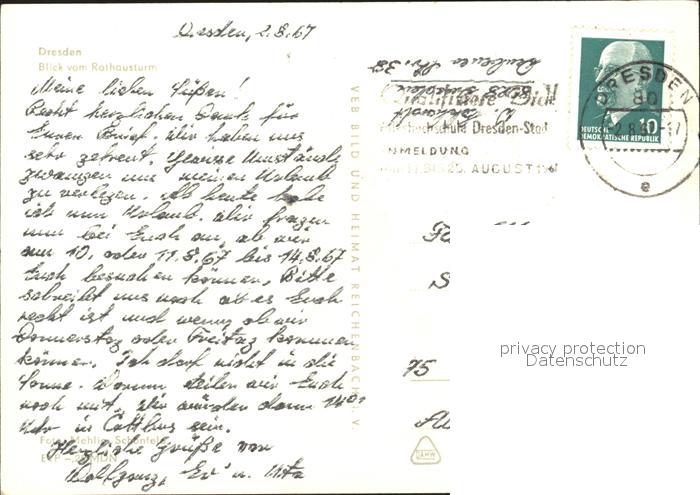 Dresden, 2.8.67
Dresden
Blick vom Rathausturm
Meine lieben Süßen!
Recht herzlichen Dank für
Euren Brief. Wir haben uns
sehr gefreut. Gewisse Umstände
zwangen uns meinen Urlaub
zu verlegen. Ab heute habe
ich nun Urlaub. Wir fragen
nun bei Euch an, ob wir
am 10. oder 11.8.67 bis 14.8.67
Euch besuchen können. Bitte
schreibt uns noch ob es Euch
recht ist und wenn, ob wir
Donnerstag oder Freitag kommen
können. Ich darf nicht in die
Sonne. Darum teilen wir Euch
noch mit, wir würden dann 14⁰⁰
Uhr in Cottbus sein.
Herzliche Grüße von
Wolfgang, Ev u.
Foto: Mehlig, Schönfeld
VEB BILD UND HEIMAT REICHENBACH I. V.
Qualifiziere Dich!
Volkshochschule Dresden-Stadt
ANMELDUNG
AUGUST 1967
DRESDEN
80
e
DEUTSCHE
DEMOKRATISCHE REPUBLIK
10
75
privacy protection
Datenschutz